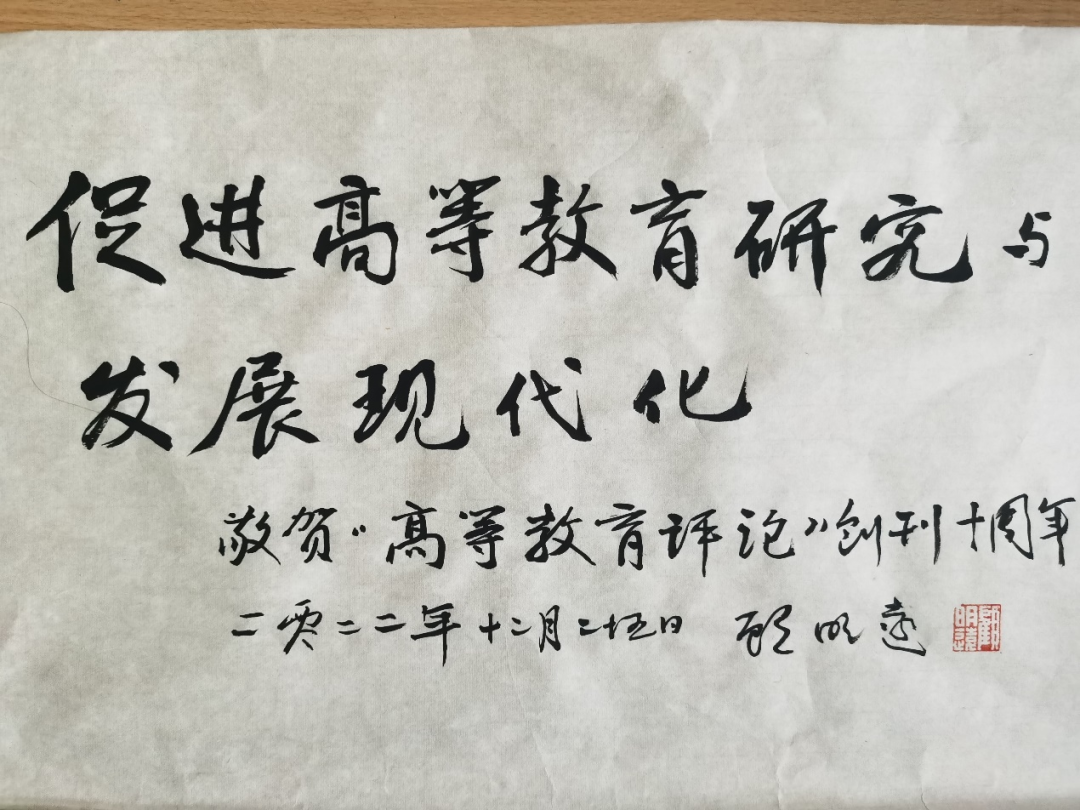 促进高等教育研究与
发展现代化
敬贺“高等教育评论”创刊十周年
二零二二年十二月二十五日 顾明远
顾明远